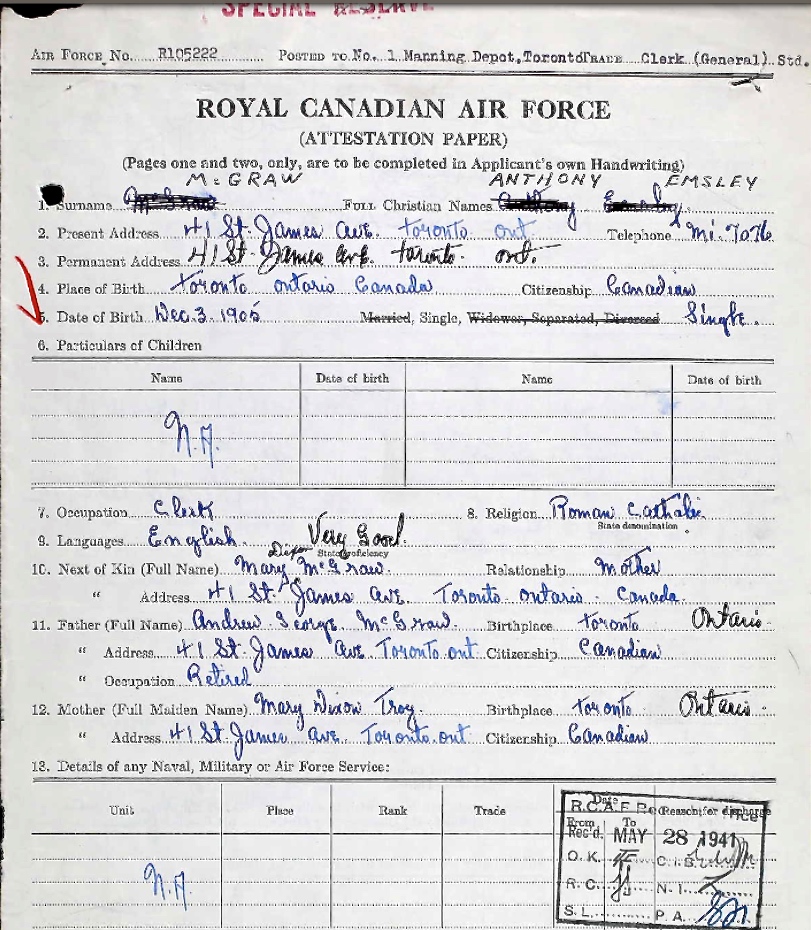 SPECIAL RESERVE
AIR FORCE No. R105222 POSTED TO No. 1 Manning Depot, Toronto TRADE Clerk (General) Std.
ROYAL CANADIAN AIR FORCE
(ATTESTATION PAPER)
(Pages one and two, only, are to be completed in Applicant's own Handwriting)
McGRAW ANTHONY EMSLEY
1. Surname McGraw FULL Christian Names Anthony Emsley
2. Present Address 41 St. James Ave. Toronto Ont Telephone Mi. 7076
3. Permanent Address 41 St. James Ave. Toronto. Ont.
4. Place of Birth Toronto Ontario Canada Citizenship Canadian
5. Date of Birth Dec. 3. 1905 Married, Single, Widower, Separated, Divorced Single.
6. Particulars of Children
Name Date of birth Name Date of birth
N.A.
7. Occupation Clerk 8. Religion Roman Catholic
State denomination
9. Languages English Very Good.
State proficiency
Dixon
10. Next of Kin (Full Name) Mary McGraw. Relationship Mother
" Address 41 St. James Ave. Toronto Ontario Canada
11. Father (Full Name) Andrew George McGraw. Birthplace Toronto Ontario
" Address 41 St. James Ave. Toronto Ont Citizenship Canadian
" Occupation Retired
12. Mother (Full Maiden Name) Mary Dixon Troy. Birthplace Toronto Ontario
" Address 41 St. James Ave. Toronto. Ont Citizenship Canadian
13. Details of any Naval, Military or Air Force Service:
Unit Place Rank Trade Date Reason for discharge
From To
N.A.
R.C.A.F. Rec
Rec'd. MAY 28 1941
O.K. C.I.B.
R.C. N.I.
S.L. P.A.